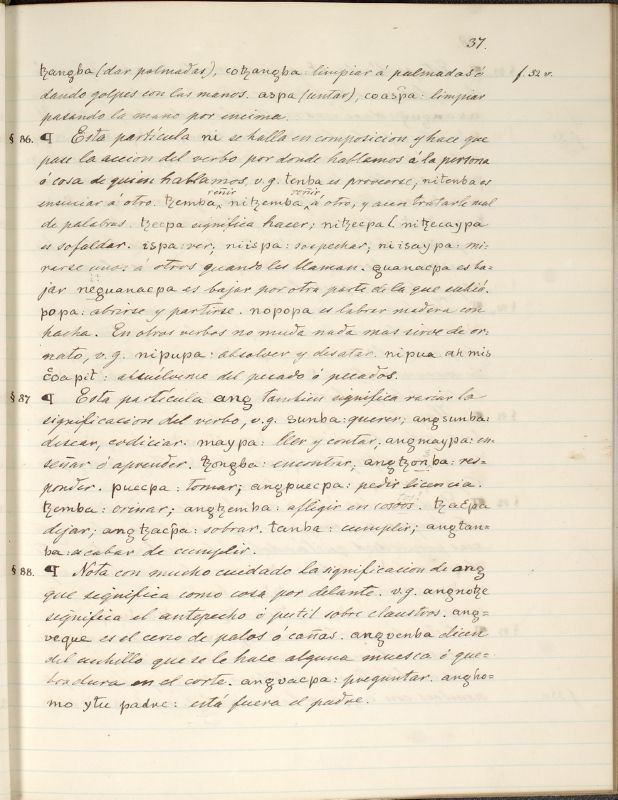 37.
ꜩangba (dar palmadas), coꜩangba: limpiar á palmadas ó f. 32 v.
dando golpes con las manos. aspa (untar), coaspa: limpiar
pasando la mano por encima.
§ 86. ¶ Esta partícula ni se halla en composicion y hace que
pase la accion del verbo por donde hablamos á la persona
ó cosa de quien hablamos, v.g. tenba es proveerse, nitenba es
ensuciar á otro. ꜩemba, reñir niꜩemba reñir á otro, y aun tratarle mal
de palabras. ꜩecpa significa hacer; niꜩecpa l. niꜩecaypa
es sofaldar. ispa: ver; niispa: sospechar; niisaypa: mi-
rarse unos á otros quando les llaman. quanacpa es ba-
jar neguanacpa es bajar por otra parte de la que subió.
popa: abrirse y partirse. nopopa es labrar madera con
hacha. En otros verbos no muda nada mas sirve de or-
nato, v.g. nipupa: absolver y desatar. nipua ah mis
coapit: absuélveme del pecado ó pecados.
§ 87 ¶ Esta partícula ang tambien significa variar la
significacion del verbo, v.g. sunba: querer; angsunba:
desear, codiciar. maypa: leer y contar, angmaypa: en-
señar ó aprender. ꜩongba: encontrar; angꜩonba: res=
ponder. puecpa: tomar; angpuecpa: pedir licencia.
ꜩemba: orinar; angꜩemba: afligir en cosos. ꜩacpa
dejar; angꜩacpa: sobrar. tanba: cumplir; angtan=
ba: acabar de cumplir.
§ 88. ¶ Nota con mucho cuidado la significacion de ang
que significa como cosa por delante. v.g. angnoꜩe
significa el antepecho ó petril sobre claustros. ang=
veque es el cerco de palos ó cañas. angvenba dicen
del cuchillo que se le hace alguna muesca ó que-
bradura en el corte. angvacpa: preguntar. angho-
mo ytu padre: está fuera el padre.